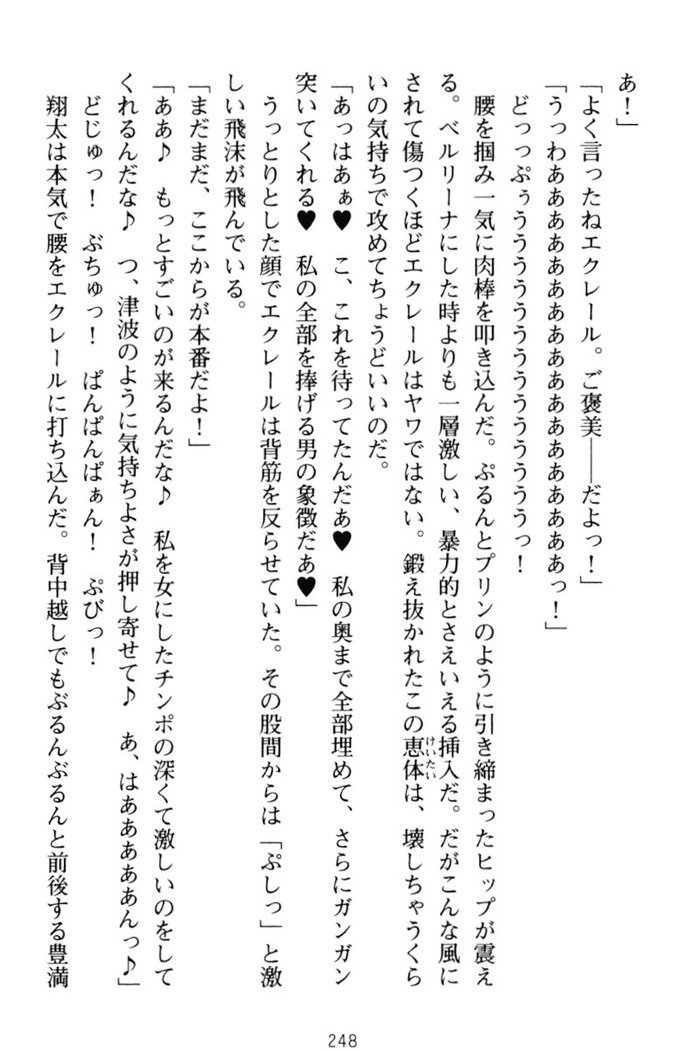 あ！」
「よく言ったねエクレール。ご褒美――だよっ！」
「うっわああああああああああああああああああっ！」
どっっぷぅうううううううううううううっ！
腰を掴み一気に肉棒を叩き込んだ。ぷるんとプリンのように引き締まったヒップが震え
る。ベルリーナにした時よりも一層激しい、暴力的とさえいえる挿入だ。だがこんな風に
されて傷つくほどエクレールはヤワではない。鍛え抜かれたこの恵体（けいたい）は、壊しちゃうくら
いの気持ちで攻めてちょうどいいのだ。
「あっはあぁ♥　こ、これを待ってたんだあ♥　私の奥まで全部埋めて、さらにガンガン
突いてくれる♥　私の全部を捧げる男の象徴だあ♥」
うっとりとした顔でエクレールは背筋を反らせていた。その股間からは「ぷしっ」と激
しい飛沫が飛んでいる。
「まだまだ、ここからが本番だよ！」
「ああ♪　もっとすごいのが来るんだな♪　私を女にしたチンポの深くて激しいのをして
くれるんだな♪　つ、津波のように気持ちよさが押し寄せて♪　あ、はああああああんっ♪」
どじゅっ！　ぶちゅっ！　ぱんぱんぱぁん！　ぷびっ！
翔太は本気で腰をエクレールに打ち込んだ。背中越しでもぶるんぶるんと前後する豊満
248